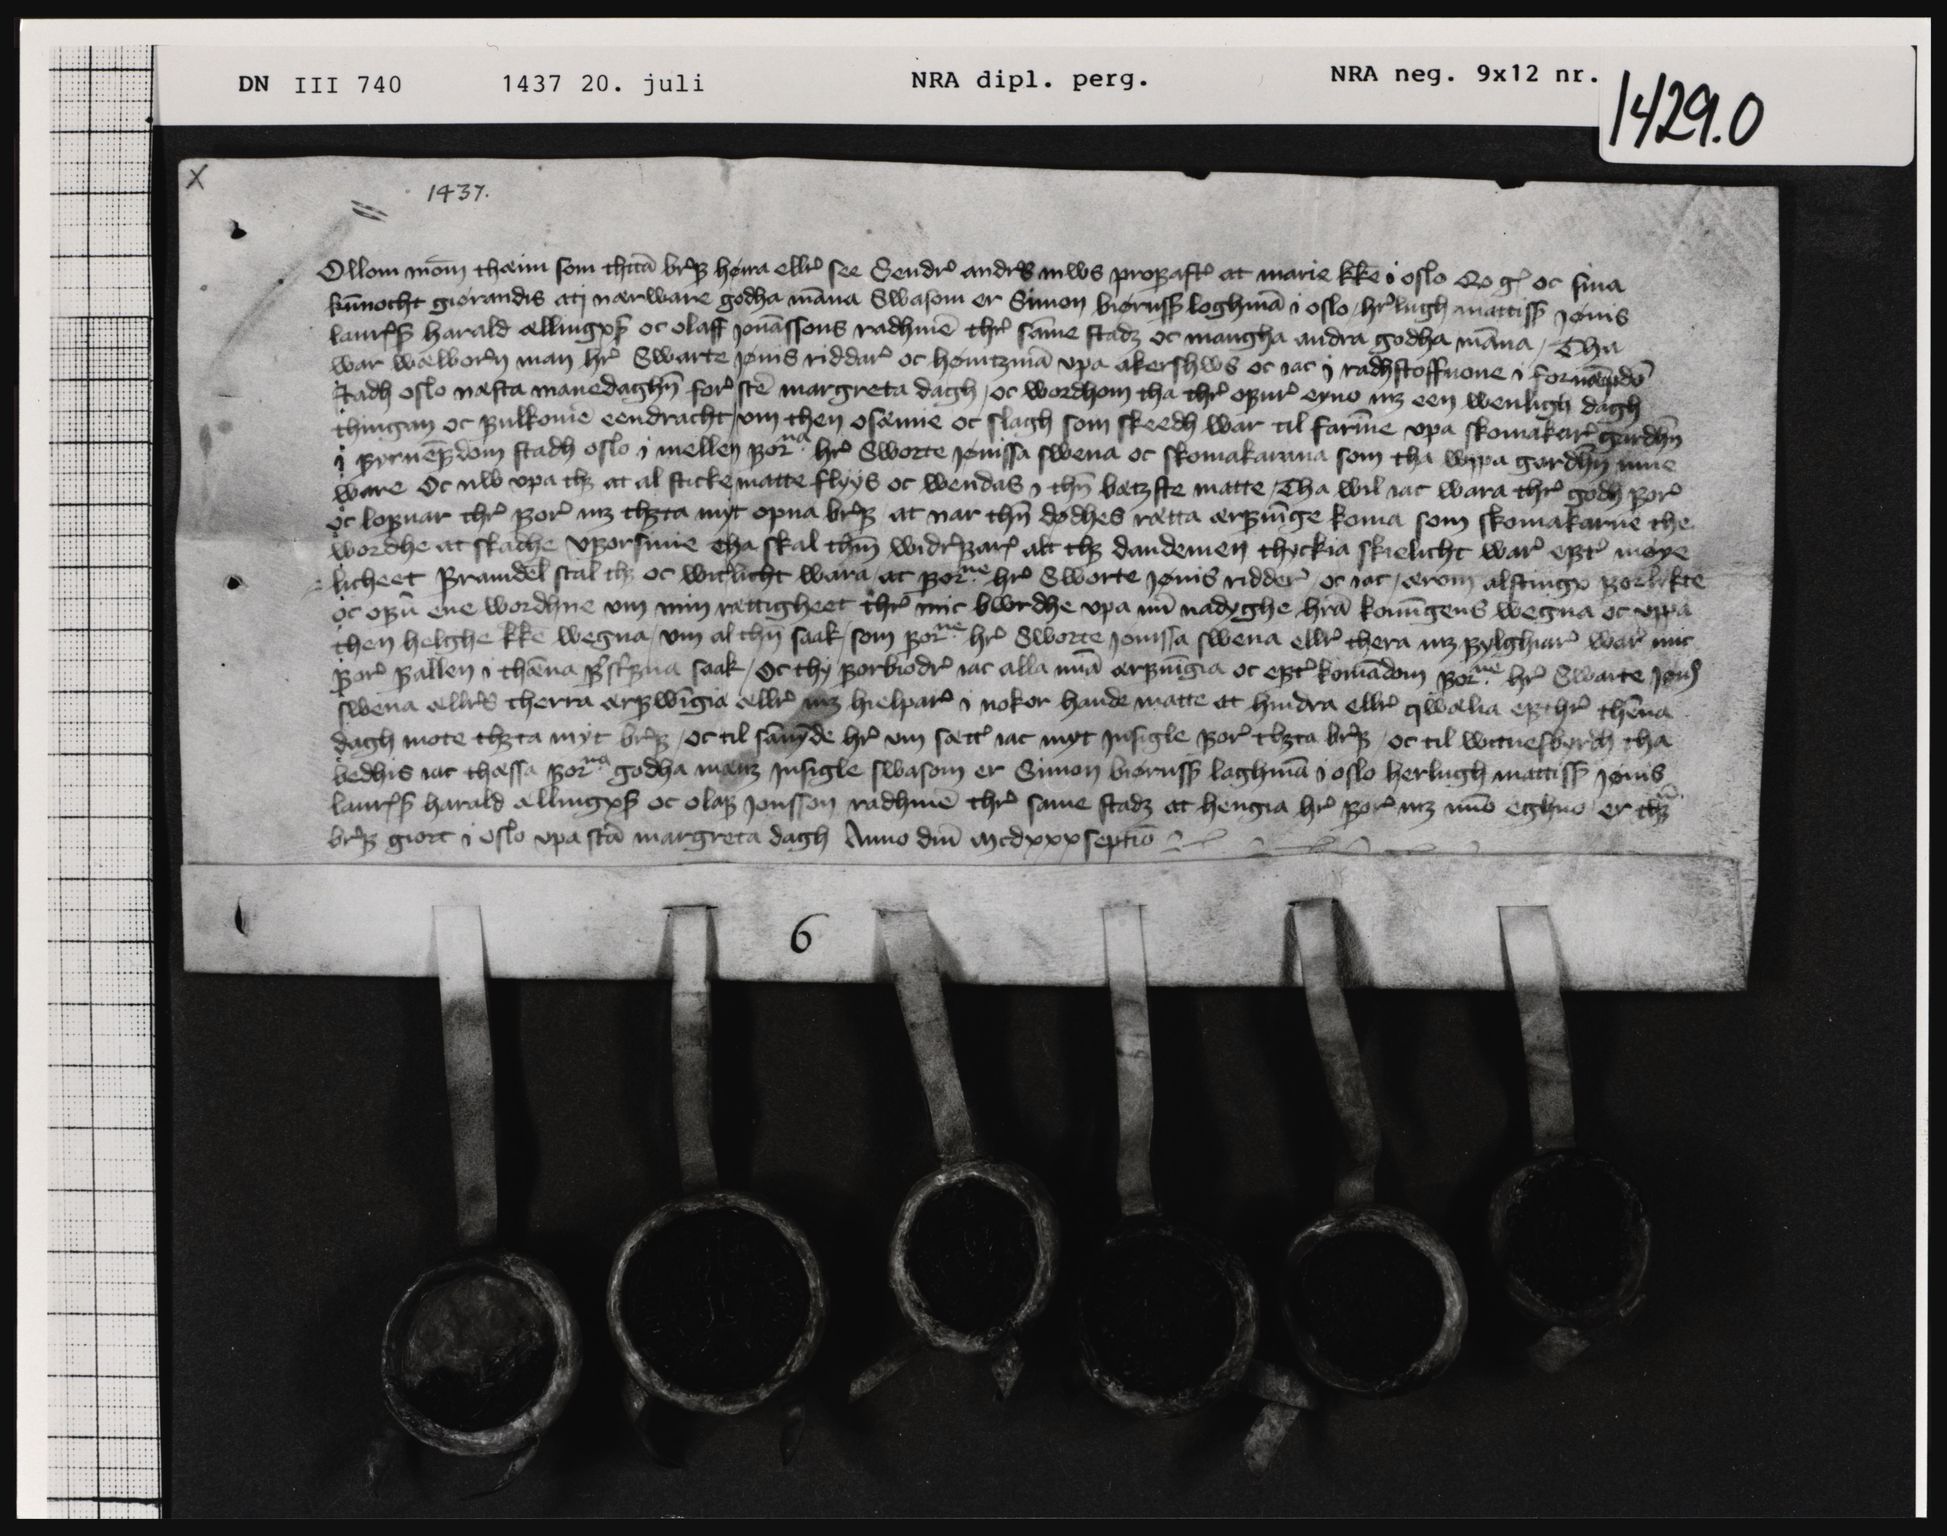 DN III 740 1437 20. juli NRA dipl. perg. NRA neg. 9x12 nr.
1429.0
X
1437.
Ollom mōm thæim som thttā br̉ff høra ellr̉ see Sendr̉ andr̉s mws profastr̉ at marie kke i oslo Q. g. oc sina
kūnocht giørandis ati nærware godha māna Swasom er Simon biørnss loghmā i oslo hr̉lugh mattiss jønis
laur̉ss harald ællingxss oc olaff jonāssons radhmē thr̉ sāme stadz oc mangha andra godha māna / Tha
war wælborn man hr̉ Swarte jønis riddar̉ oc høuitzmā vpa akershws oc iac j radhstoffuone i fornæmpdō
stadh oslo næsta manedaghn̄ for̉ stē margreta dagh / oc wordhom tha thr̉ ofur̉ eyno mz een wenligh dagh
thingan oc fulkome eendracht / vm then osæmie oc slagh som skeedh war til farn̄ne vpa skomakar̉ gardhn̄
j fyrnēfdom stadh oslo i mellen for.na hr̉ Sworte jønissa swena oc skomakarana som tha wppa gardhn̄ inne
ware Oc nw vpa thz at al sticke matte flyys oc wendas i thn̄ bætzste matte / Tha wil iac wara thr̉ godh for̉
oc lofuar thr̉ for̉ mz thzta myt opna br̉ff at nar thn̄ dødhes rætta ærfuīnge koma som skomakarne the
wordhe at skadhe vforsinne tha skal thm̄ widr̉far̉ alt thz dandemen thyckia skielicht war̉ eftr̉ møye
licheet framdel skal thz oc witr̉licht wara at for.ne hr̉ Sworte jønis ridder̉ oc iac ærom alstingx forlikte
oc ofū ene wordhne vm min rættigheet thr̉ mic bwrdhe vpa mī nadyghe hr̄a konūgens wegna oc vppa
then helghe kke wegna / vm al thn̄ saak / som for.ne hr̉ Sworte jonissa swena ellr̉ thera mz fylghiar̉ war̉ mic
for̉ fallen i thēna saak / Oc thy forbiodr̉ iac alla mīa ærfuīgia oc eftr̉ komādom for.ne hr̉ Swarte jøn
swena ællr̉s therra ærfwīgia ællr̉ mz hielpar̉ i nokor hande matte at hindra ellr̉ qwælia efthr̉ thēna
dagh mote thzta myt br̉ff / oc til sānynde hr̉ vm sættr̉ iac myt jnsigle for̉ thzta br̉ff / oc til witnesbyrdh tha
bedhis iac thæssa for.na godha manz jnsigle swasom er Simon biørnss laghmā i oslo herlugh mattiss jønis
laur̉ss harald ællingxss oc olaff jonsson radhmē thr̉ same stadz at hengia hr̉ for̉ mz mīo eghno er thz
br̉ff giort i oslo vpa stā margreta dagh Anno dnī mcdxxxseptīo
6